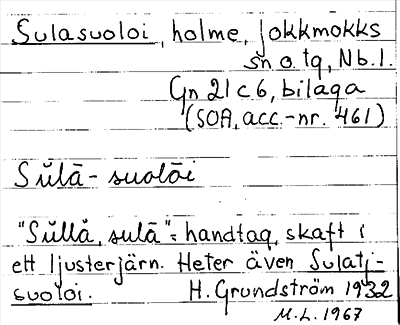 Sulasuoloi, holme, Jokkmokks
sn o. tg, Nb. l.
Gn 21 c 6, bilaga
(SOA, acc.-nr. 461)
Sŭlā- suolōi
"Sŭllå, sulā" = handtag, skaft i
ett ljusterjärn. Heter även Sulatj-
suoloi. H. Grundström 1932
M.L. 1967